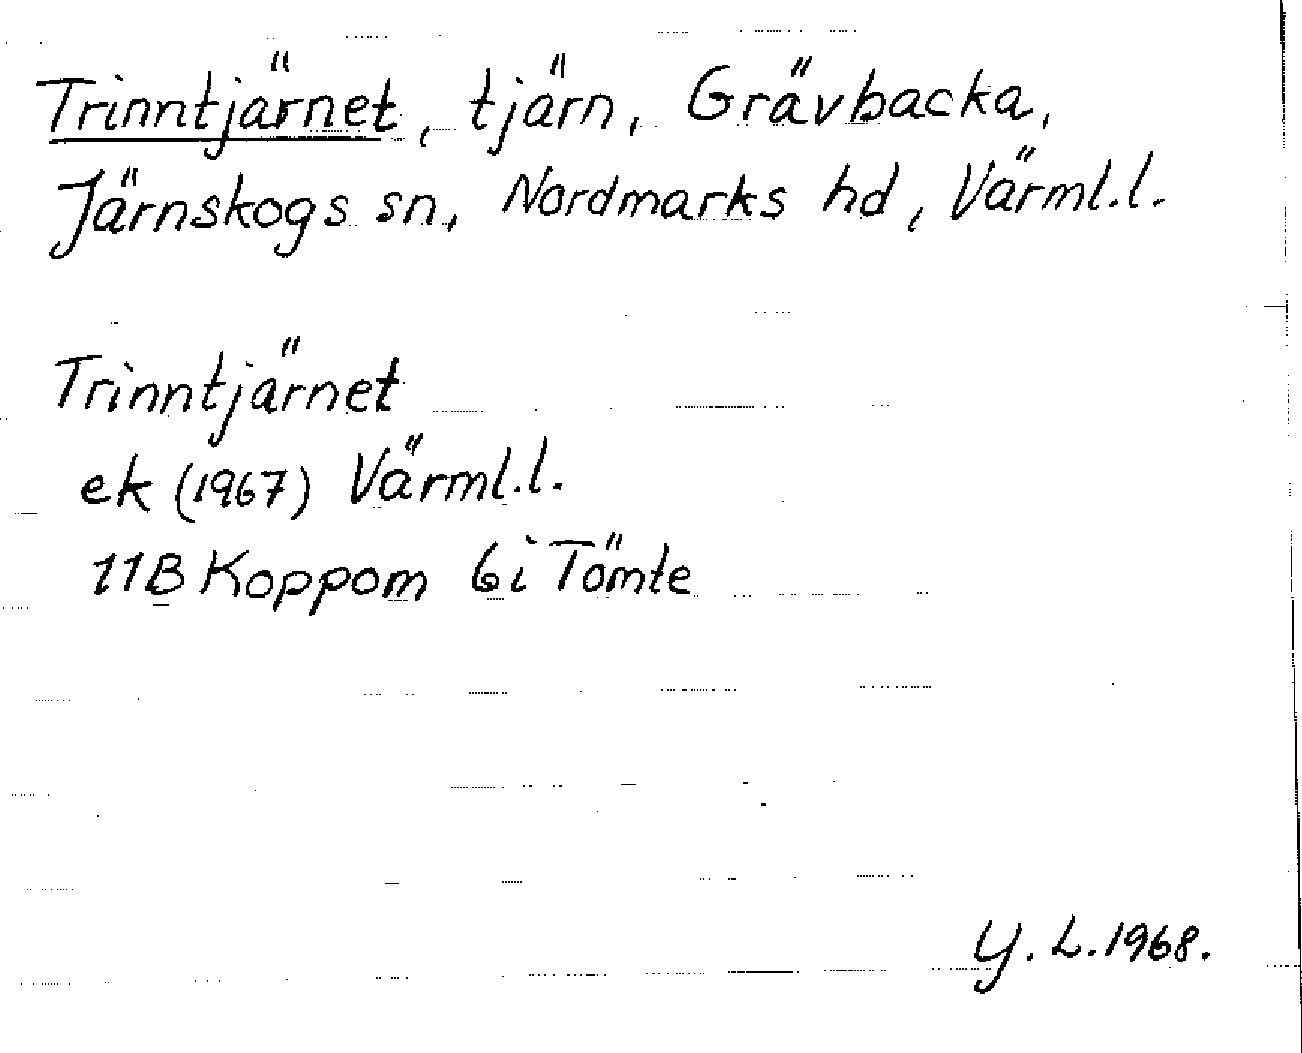 Trinntjärnet, tjärn, Grävbacka,
Järnskogs sn, Nordmarks hd, Värml.l.
Trinntjärnet
ek (1967) Värml.l.
11B Koppom 6i Tömte
Y. L. 1968.